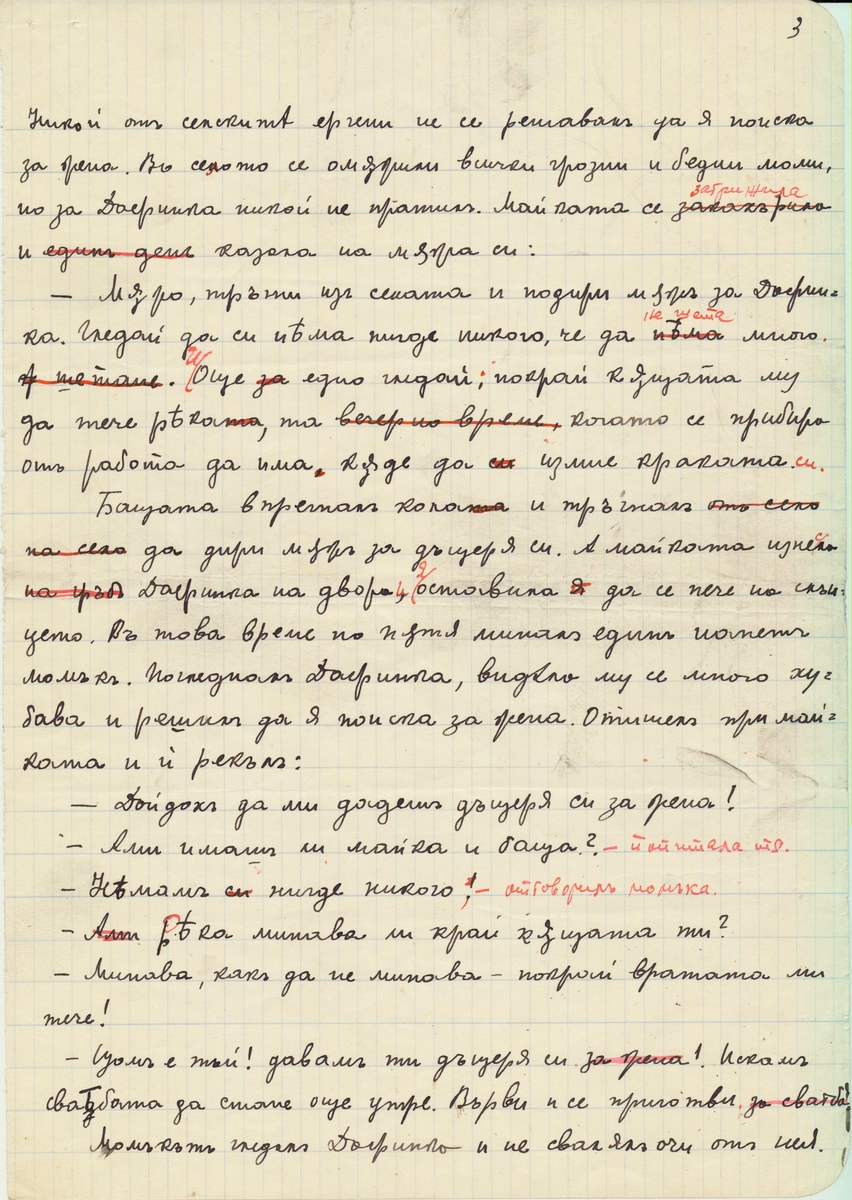 3
Никой отъ селскитѣ ергени не се решавалъ да я поиска
за жена. Въ селото се омѫжили всички грозни и бедни моми,
но за Дафинка никой не пратилъ. Майката се закахърила затрижила
и единъ день казала на мѫжа си:
— Мѫжо, тръгни изъ селата и подири мѫжъ за Дафин=
ка. Гледай да си нѣма нигде никого, че да нѣма не щета много.
щетане. Още за едно гледай; покрай кѫщата му
да тече рѣката, та вечерно време, когато се прибира
отъ работа да има, кѫде да си измие краката си.
Бащата впрегналъ колата и тръгналъ отъ село
на село да дири мѫжъ за дъщеря си. А майката изнесла
на гръбъ Дафинка на двора, и я оставила я да се пече на слън=
цето. Въ това време по пѫтя миналъ единъ напетъ
момъкъ. Погледналъ Дафинка, видѣла му се много ху=
бава и решилъ да я поиска за жена. Отишелъ при май=
ката и ѝ рекълъ:
— Дойдохъ да ми дадешъ дъщеря си за жена!
— Ами имашъ ли майка и баща? – попитала тя.
– Нѣмамъ си нигде никого! – отговорилъ момъка.
– Ами Рѣка минава ли край кѫщата ти?
– Минава, какъ да не минава – покрай вратата ми
тече!
– Щомъ е тъй! давамъ ти дъщеря си за жена! Искамъ
сватбата да стане още утре. Върви и се приготви за сватба.
Момъкътъ гледалъ Дафинка и не свалялъ очи отъ нея.